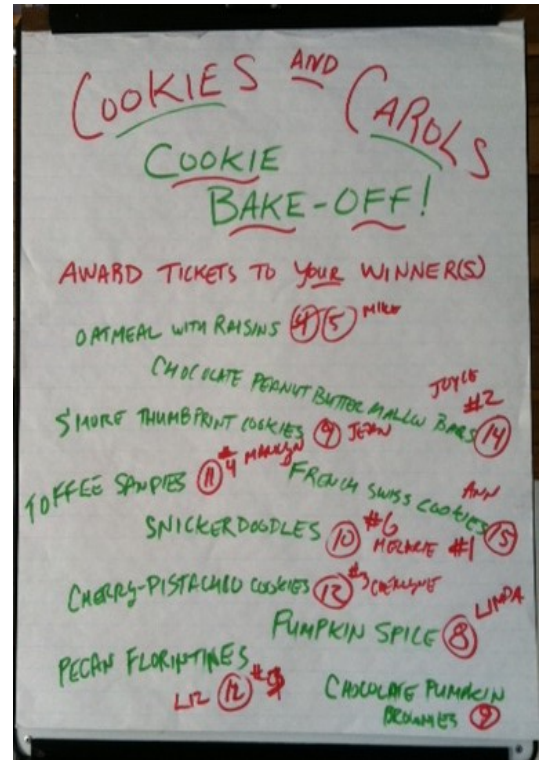 COOKIES AND CAROLS
COOKIE
BAKE-OFF!
AWARD TICKETS TO YOUR WINNER(S)
OATMEAL WITH RAISINS 4 5 MIKE
CHOCOLATE PEANUT BUTTER MALLOW BARS 14 JOYCE #2
S'MORE THUMBPRINT COOKIES 9 JEAN
TOFFEE 11 #4 MARILYN
FRENCH SWISS COOKIES 15 ANN #1
SNICKERDOODLES 10 #6
CHERRY-PISTACHIO COOKIES 12 #3
PUMPKIN SPICE 8 LINDA
PECAN FLORINTINES 12
LIZ
CHOCOLATE PUMPKIN
BROWNIES 9